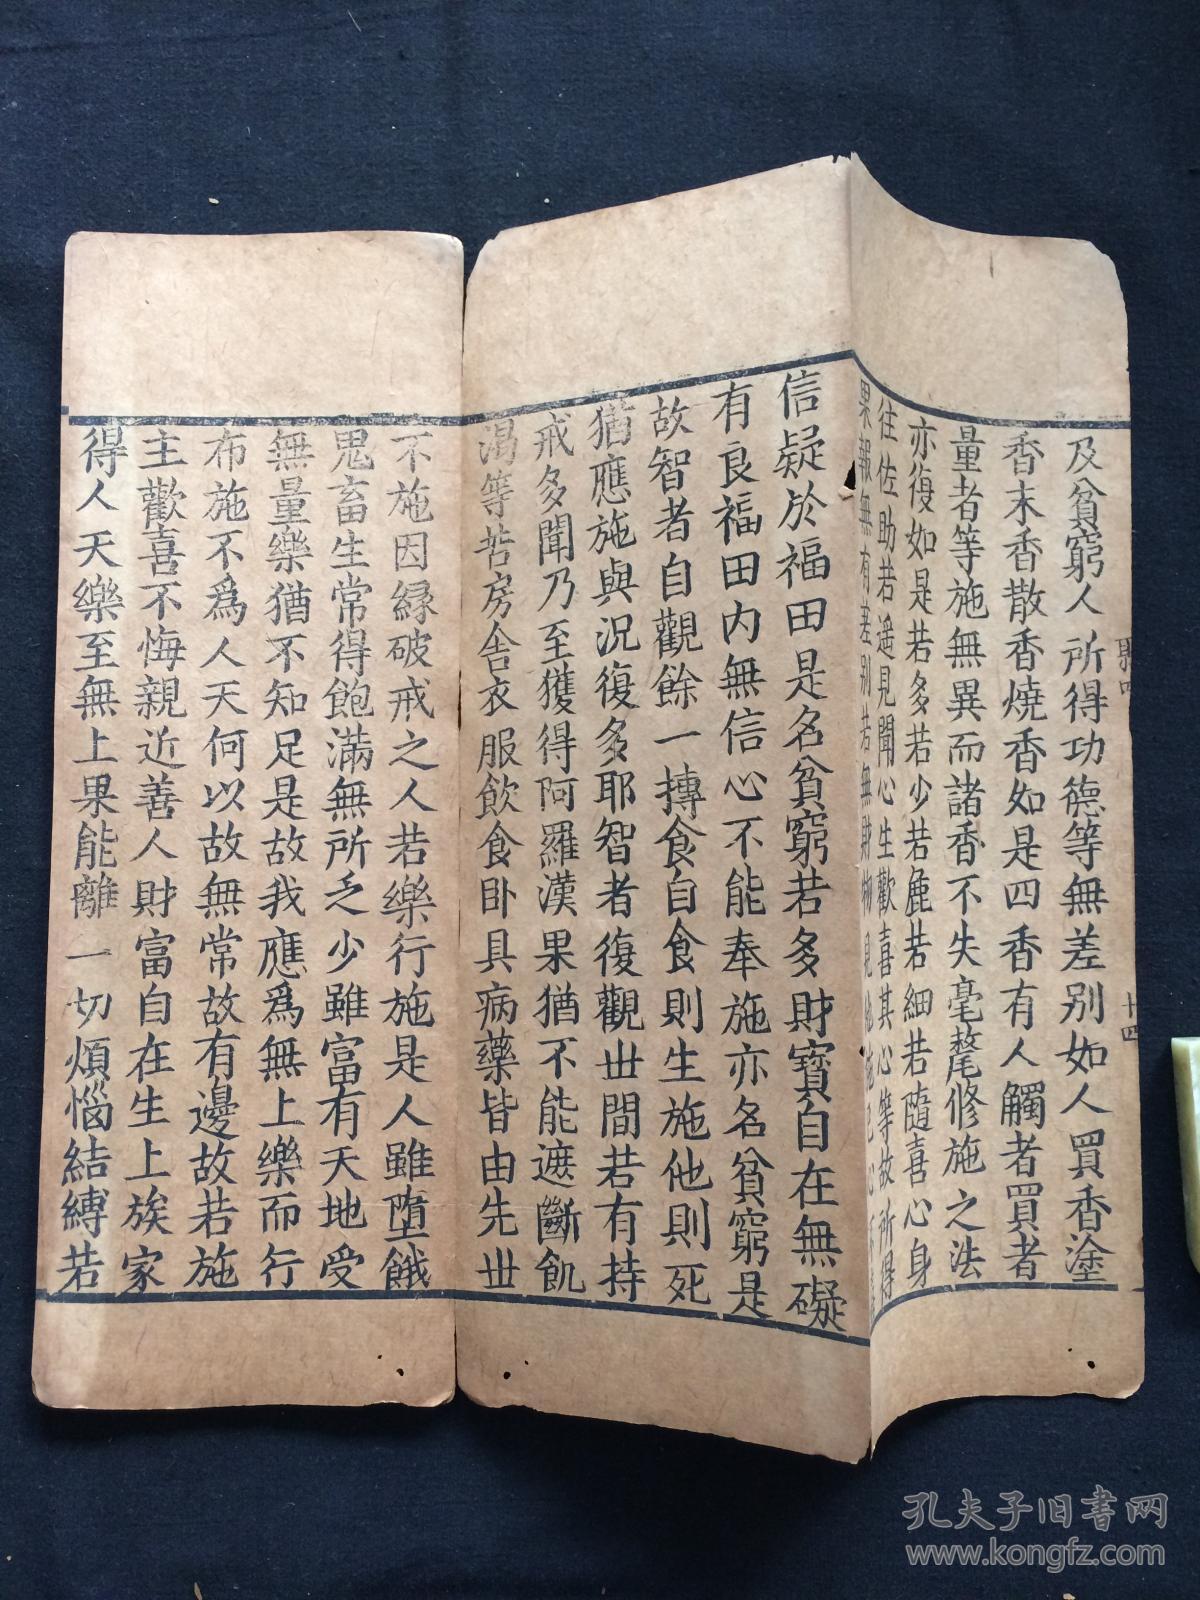 及貧窮人所得功德等無差別如人買香塗
香末香散香燒香如是四香有人觸者買者
量者等施無異而諸香不失毫氂修施之法
亦復如是若多若少若麁若細若隨喜心身
往佐助若遥見聞心生歡喜其心等故所得
果報無有差別若無財物見他施已心不
信疑於福田是名貧窮若多財寶自在無礙
有良福田内無信心不能奉施亦名貧窮是
故智者自觀餘一摶食自食則生施他則死
猶應施與況復多耶智者復觀世間若有持
戒多聞乃至獲得阿羅漢果猶不能遮斷飢
渴等苦房舎衣服飲食卧具病藥皆由先世
不施因縁破戒之人若樂行施是人雖墮餓
鬼畜生常得飽滿無所乏少雖富有天地受
無量樂猶不知足是故我應爲無上樂而行
布施不爲人天何以故無常故有邊故若施
主歡喜不悔親近善人財富自在生上族家
得人天樂至無上果能離一切煩惱結縛若
十四
孔夫子旧书网
www.kongfz.com